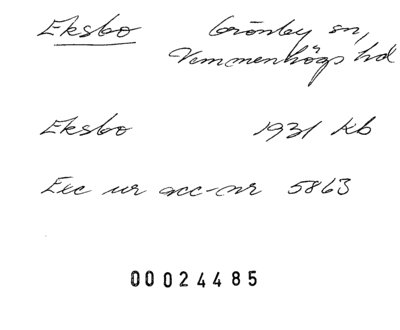 Eksbo Grönby sn,
Vemmenhögs hd
Eksbo 1931 kb
Exc ur acc-nr 5863
00024485